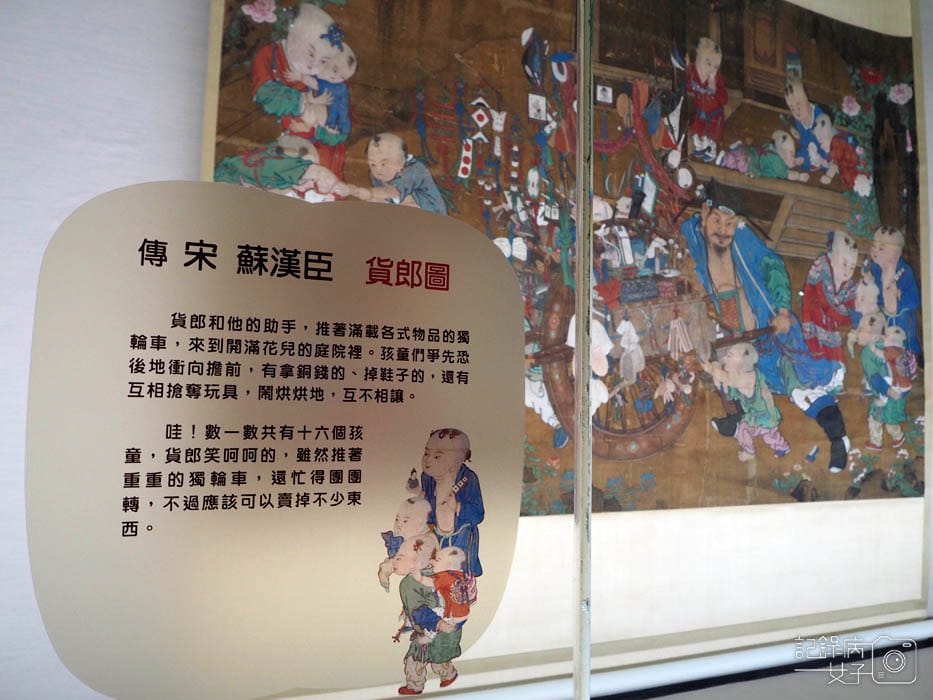 傳 宋 蘇漢臣 貨郎圖
貨郎和他的助手，推著滿載各式物品的獨
輪車，來到開滿花兒的庭院裡。孩童們爭先恐
後地衝向擔前，有拿銅錢的、掉鞋子的，還有
互相搶奪玩具，鬧烘烘地，互不相讓。
哇！數一數共有十六個孩
童，貨郎笑呵呵的，雖然推著
重重的獨輪車，還忙得團團
轉，不過應該可以賣掉不少東
西。
記錄病
女子